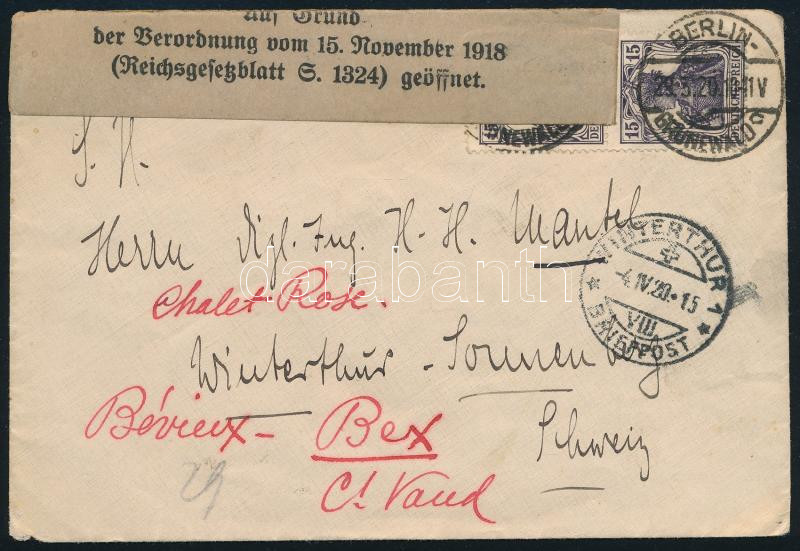 Auf Grund
der Verordnung vom 15. November 1918
(Reichsgesetzblatt S. 1324) geöffnet.
15 15
DEUTSCHES REICH
BERLIN-
GRUNEWALD
S. H.
Herrn Dipl. Ing. H. H. Mantel
WINTERTHUR 1
IV.20-15
VIII
BRIEFPOST
Chalet Rose.
Winterthur - Sonnenberg
Bévieux - Bex
Schweiz
Ct Vaud
darabanth